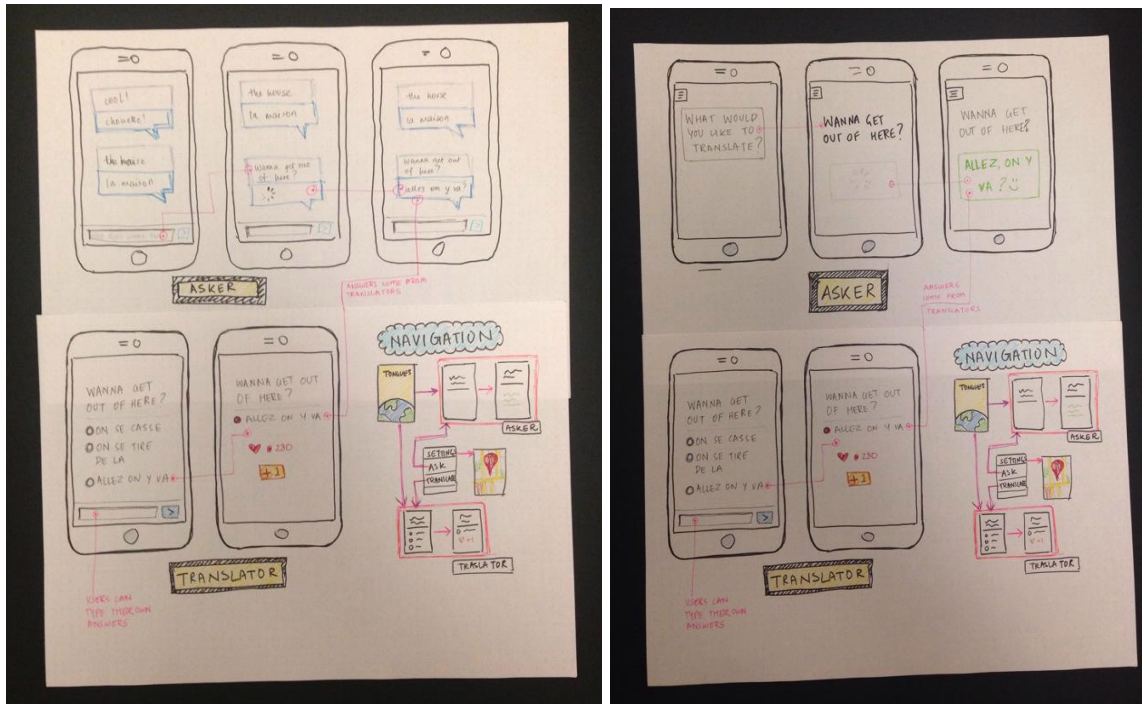 cool!
chevere!
the house
la maison
the house
la maison
Wanna get out
of here?
the house
la maison
Wanna get out
of here?
allez on y va?
>
>
>
ASKER
ANSWERS COME FROM
TRANSLATORS
WANNA GET
OUT OF HERE?
ON SE CASSE
ON SE TIRE
DE LA
ALLEZ ON Y VA
>
WANNA GET OUT
OF HERE?
ALLEZ ON Y VA
230
+1
TRANSLATOR
USERS CAN
TYPE THEIR OWN
ANSWERS
NAVIGATION
TONGUES
ASKER
SETTINGS
ASK
TRANSLATE
+1
TRASLATOR
WHAT WOULD
YOU LIKE TO
TRANSLATE?
WANNA GET
OUT OF HERE?
WANNA GET
OUT OF HERE?
ALLEZ, ON Y
VA ?
ASKER
ANSWERS
COME FROM
TRANSLATORS
WANNA GET
OUT OF HERE?
ON SE CASSE
ON SE TIRE
DE LA
ALLEZ ON Y VA
>
WANNA GET OUT
OF HERE?
ALLEZ ON Y VA
230
+1
TRANSLATOR
USERS CAN
TYPE THEIR OWN
ANSWERS
NAVIGATION
TONGUES
ASKER
SETTINGS
ASK
TRANSLATE
+1
TRASLATOR